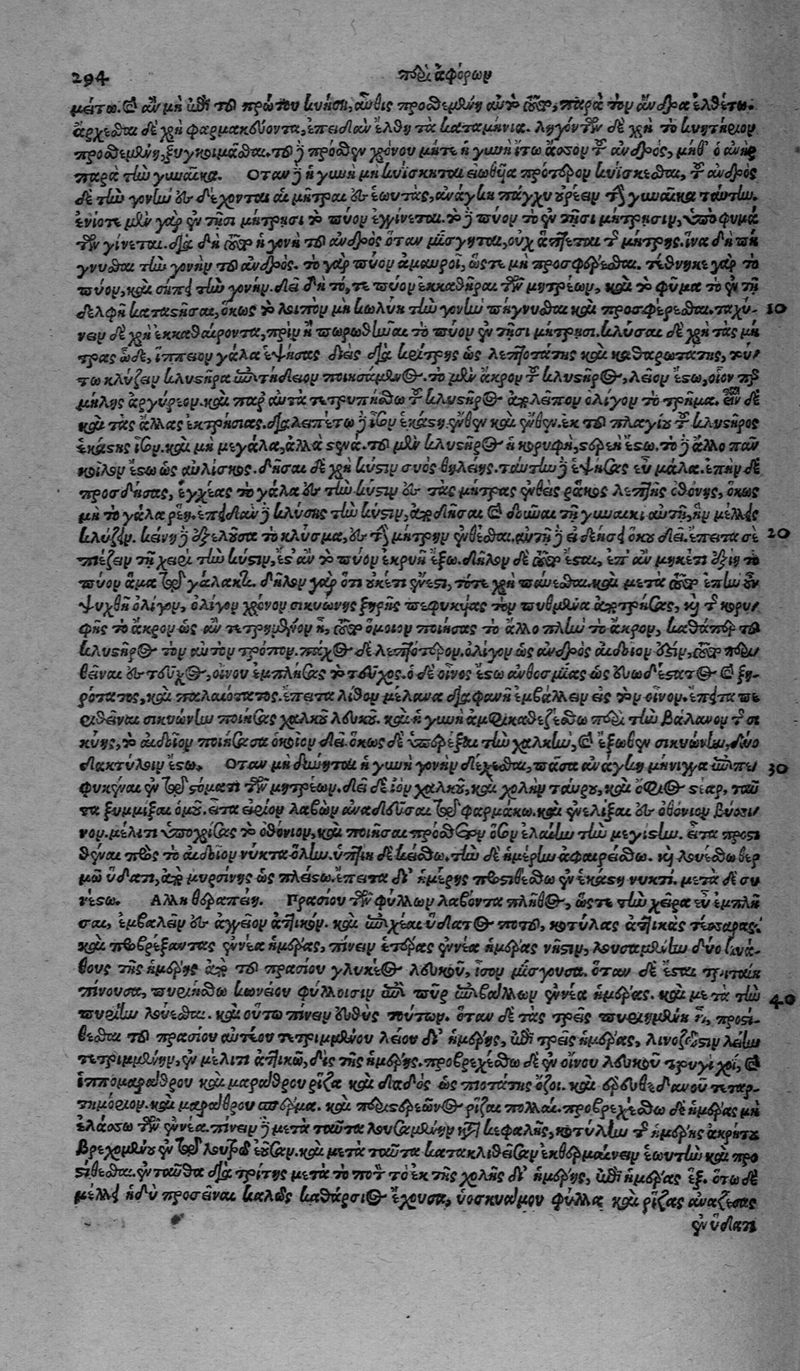 294 περὶ ἀφόρων
μείτω. καὶ ἂν μὴ ἐπὶ τοῦ πρώτου κυήσῃ, αὖθις προσθεμένη αὐτὸ τοῦτο, παρὰ τὸν ἄνδρα ἐλθέτω.
ἄρχεσθαι δὲ χρὴ φαρμακεύοντα, ἐπειδὰν ἔλθῃ τὰ καταμήνια. ληγόντων δὲ χρὴ τὸ κυητήριον
προσθεμένη, ξυγκοιμᾶσθαι. τοῦ δὲ πρόσθεν χρόνου μήτε ἡ γυνὴ ἴτω ἆσσον τοῦ ἀνδρὸς, μήθ' ὁ ἀνὴρ
παρὰ τὴν γυναῖκα. Οταν δὲ ἡ γυνὴ μὴ κυίσκηται εἰωθυῖα πρότερον κυίσκεσθαι, τοῦ ἀνδρὸς
δὲ τὴν γονὴν οὐ δέχονται αἱ μῆτραι ἐς ἑωυτὰς, ἀνάγκη πάγχυ ὁρέειν τῇ γυναῖκα ταύτην.
ἐνίοτε μὲν γὰρ ἐν τῇσι μήτρῃσι τὸ πύον ἐγγίνεται. τὸ δὲ πύον τὸ ἐν τῇσι μήτρῃσιν, ὑπὸ φυμά
των γίνεται. διὰ δὴ τοῦτο ἡ γονὴ τοῦ ἀνδρὸς ὅταν μίσγηται, οὐχ ἅπτεται τῆς μήτρης. ἵνα δὴ πή
γνυσθαι τὴν γονὴν τοῦ ἀνδρὸς. τὸ γὰρ πύον ἀμαυροῖ, ὥστε μὴ προσφέρεσθαι. τέθνηκε γὰρ τὸ
πύον, καὶ σήπει τὴν γονήν. δεῖ δὴ τό, τε πύον ἐκκαθῆραι τῶν μητρέων, καὶ τὸ φῦμα τὸ ἐν τῇ
δελφῇ καταστῆσαι, ὅκως τὸ λοιπὸν μὴ κωλύῃ τὴν γονὴν πήγνυσθαι καὶ προσφέρεσθαι. ταχύ- 10
νειν δὲ χρὴ ἐκκαθαίροντα, πρὶν ἢ πωρωθῆναι τὸ πύον ἐν τῇσι μήτρῃσι. κλύσαι δὲ χρὴ τὰς μή
τρας ὧδε, ἵππειον γάλα ἑψήσας διεὶς διὰ κρίτρης ὡς λεπτοτάτης καὶ καθαρωτάτης, τού
τῳ κλύζειν κλυστῆρα ἐπιτήδειον ποιησάμενος. τὸ μὲν ἄκρον τοῦ κλυστῆρος, λεῖον ἔστω, οἷον περ
μήλης ἀργύρεον. καὶ παρ' αὐτὰ τετρυπήσθω τοῦ κλυστῆρος ἀπολεῖπον ὀλίγον τὸ τρῆμα. εἶναι δὲ
καὶ τὰς ἄλλας ἐκτρήσιας. διαλειπέτω δὲ ἴσον ἑκάστη ἔνθεν καὶ ἔνθεν. ἐκ τοῦ πλαγίου τοῦ κλυστῆρος
ἑκάστης ἴσον. καὶ μὴ μεγάλα, ἀλλὰ στενά. τοῦ μὲν κλυστῆρος ἡ κορυφὴ, στερεὴ ἔστω. τὸ δὲ ἄλλο πᾶν
κοῖλον ἔστω ὡς αὐλίσκος. δῆσαι δὲ χρὴ κύστιν συὸς θηλείης. ταύτην δὲ ἑψήσας εὖ μάλα. ἐπὴν δὲ
προσδήσας, ἐγχέας τὸ γάλα ἐς τὴν κύστιν ἐς τὰς μήτρας ἐνθεὶς ῥάκος λεπτῆς ὀθόνης, ὅκως
μὴ τὸ γάλα ῥέῃ. ἐπειδὰν δὲ κλύσῃς τὴν κύστιν, ἀποδῆσαι καὶ δοῦναι τῇ γυναικὶ αὐτῇ, ἣν μέλλεις
κλύζειν. κείνη δὲ ἐξελοῦσα τὸ κλύσμα, ἐς τὴν μήτρην ἐνθέσθω. αὐτὴ δὲ εἰδήσει ὅκου δεῖ. ἔπειτα σὲ 20
πιέζειν τῇ χειρὶ τὴν κύστιν, ἔς ἂν τὸ πύον ἐκρυῇ ἔξω. δῆλον δὲ τοῦτο ἔσται, ἐπ' ἂν μηκέτι ἐξίῃ τὸ
πύον ἅμα τῷ γάλακτι. δῆλον γὰρ ὅτι οὐκέτι ἔνεστι, τότε χρὴ παύεσθαι. καὶ μετὰ τοῦτο ἐπὴν ἂν
ψυχθῇ ὀλίγον, ὀλίγον χρόνον σικυώνης ξηρῆς πεφυκυίας τὸν πυθμένα ἀποτρήσας, καὶ τῆς κορυ-
φῆς τὸ ἄκρον ὡς ἂν τετρημένον ᾖ, τοῦτο ὅμοιον ποιήσας τὸ ἄλλο πλὴν τὸ ἄκρον, καθάπερ τοῦ
κλυστῆρος τὸν αὐτὸν τρόπον. πάχος δὲ λεπτότερον. ὀλίγον ὡς ἀνδρὸς αἰδοῖον ὑδεῖν, τοῦτο περι
θεῖναι ἐς τεῦχος, οἴνου ἐμπλήσας τὸ τεῦχος. ὁ δὲ οἶνος ἔστω ἀνθοσμίας ὡς εὐωδέστατος καὶ ξη-
ρότατος, καὶ παλαιότατος. ἔπειτα λίθον μέλανα διαφανῆ ἐμβάλλειν ἐς τὸν οἶνον. ἔπειτα πε
ριθεῖναι σικυώνην ποιήσας χαλκοῦ λευκοῦ. καὶ ἡ γυνὴ ἀμφικαθεζέσθω περὶ τὴν βάλανον τῆς σι
κύης, τὸ αἰδοῖον ποιήσασα ὁκοῖον δεῖ. ὅκως δὲ ὑπερέξει τὴν χαλκῆν, καὶ ἔξωθεν σικυώνην, δύο
δακτύλοιν ἔστω. Οταν μὴ δύνηται ἡ γυνὴ γονὴν δέχεσθαι, πᾶσα ἀνάγκη μήνιγγα ἐπιπε 30
φυκέναι ἐν τῷ στόματι τῶν μητρέων. δεῖ δὲ ἰὸν χαλκοῦ, καὶ χολὴν ταύρου, καὶ ὄφιος στέαρ, ταῦ
τα ξυμμίξαι ὁμοῦ. εἶτα εἴριον λαβὼν ἀναδεῦσαι τῷ φαρμάκῳ. καὶ ἐνελίξαι ἐς ὀθόνιον βύσσι-
νον. μέλιτι ὑποχρίσας τὸ ὀθόνιον, καὶ ποιῆσαι πρόσθετον ὅσον ἐλαίην τὴν μεγίστην. εἶτα προστι
θέναι πρὸς τὸ αἰδοῖον νύκτα ὅλην. ὑπτίη δὲ κείσθω. τὴν δὲ ἡμέρην ἀφαιρείσθω. καὶ λουέσθω θερ
μῷ ὕδατι, ἀπὸ μυρσίνης ὡς πλείστω. ἔπειτα δι' ἡμέρης προστιθέσθω ἐν ἑκάστῃ νυκτί. μετὰ δὲ συ
νέστω. Αλλη θεραπείη. Πρασίου τῶν φύλλων λαβόντα πλῆθος, ὥστε τὴν χεῖρα εὖ ἐμπλῆ
σαι, ἐμβαλεῖν ἐς ἀγγεῖον ἀττικόν. καὶ ἐπιχέαι ὕδατος ποτοῦ, κοτύλας ἀττικὰς τέσσαρας.
καὶ προβρέξαντας ἐννέα ἡμέρας, πίνειν ἑτέρας ἐννέα ἡμέρας νῆστιν, λουσαμένην δύο κυά-
θους τῆς ἡμέρης ἀπὸ τοῦ πρασίου γλυκέος λευκοῦ, ἴσον μίσγουσα. ὅταν δὲ ἔσται τριταίη
πίνουσα, πυριήσθω κωνείου φύλλοισιν ἐπὶ πῦρ ἐπιβάλλων ἐννέα ἡμέρας. καὶ μετὰ τὴν 40
πυρίην λούεσθαι. καὶ οὕτω πίνειν εὐθὺς τοῦτον. ὅταν δὲ τὰς τρεῖς πυριημένη ᾖ, προστί-
θεσθαι τοῦ πρασίου αὐτέου τετριμμένου λείου δι' ἡμέρης, ἐπὶ τρεῖς ἡμέρας, λινοζώστιν λείην
τετριμμένην, ἐν μέλιτι ἀττικῷ, δὶς τῆς ἡμέρης. προβρεχέσθω δὲ ἐν οἴνου λευκοῦ τρυγὶ χοῖ, καὶ
ἱππομαράθρου καὶ μαράθρου ῥίζα καὶ δαδὸς ὡς πιοτάτης ὄζοι. καὶ ἐρευθεδανοῦ τεταρ-
τημόριον. καὶ μαράθρου σπέρμα. καὶ περιστερεῶνος ῥίζαι πολλαί. προβρεχέσθω δὲ ἡμέρας μὴ
ἐλάσσω τῶν ἐννέα. πίνειν δὲ μετὰ ταῦτα λουσαμένην κατὰ κεφαλῆς, κοτύλην τῆς ἡμέρης ἀκρήτου
βρεχομένου ἐν τῷ λουτρῷ ἐοῦσαν. καὶ μετὰ ταῦτα κατακλιθεῖσαν ἐκθερμαίνειν ἑωυτὴν καὶ προ
στίθεσθαι. ἐνταῦθα διὰ τρίτης μετὰ τὸ ποτὸν τὸ ἐκ τῆς χολῆς δι' ἡμέρης, ἐπὶ ἡμέρας ἕξ. ὅτῳ δὲ
μέλλει ἡδὺ προσεῖναι καλῶς καθάρσιος ἔχουσα, ὑοσκυάμου φύλλα καὶ ῥίζας ἀναζέσας
ἐν ὕδατι